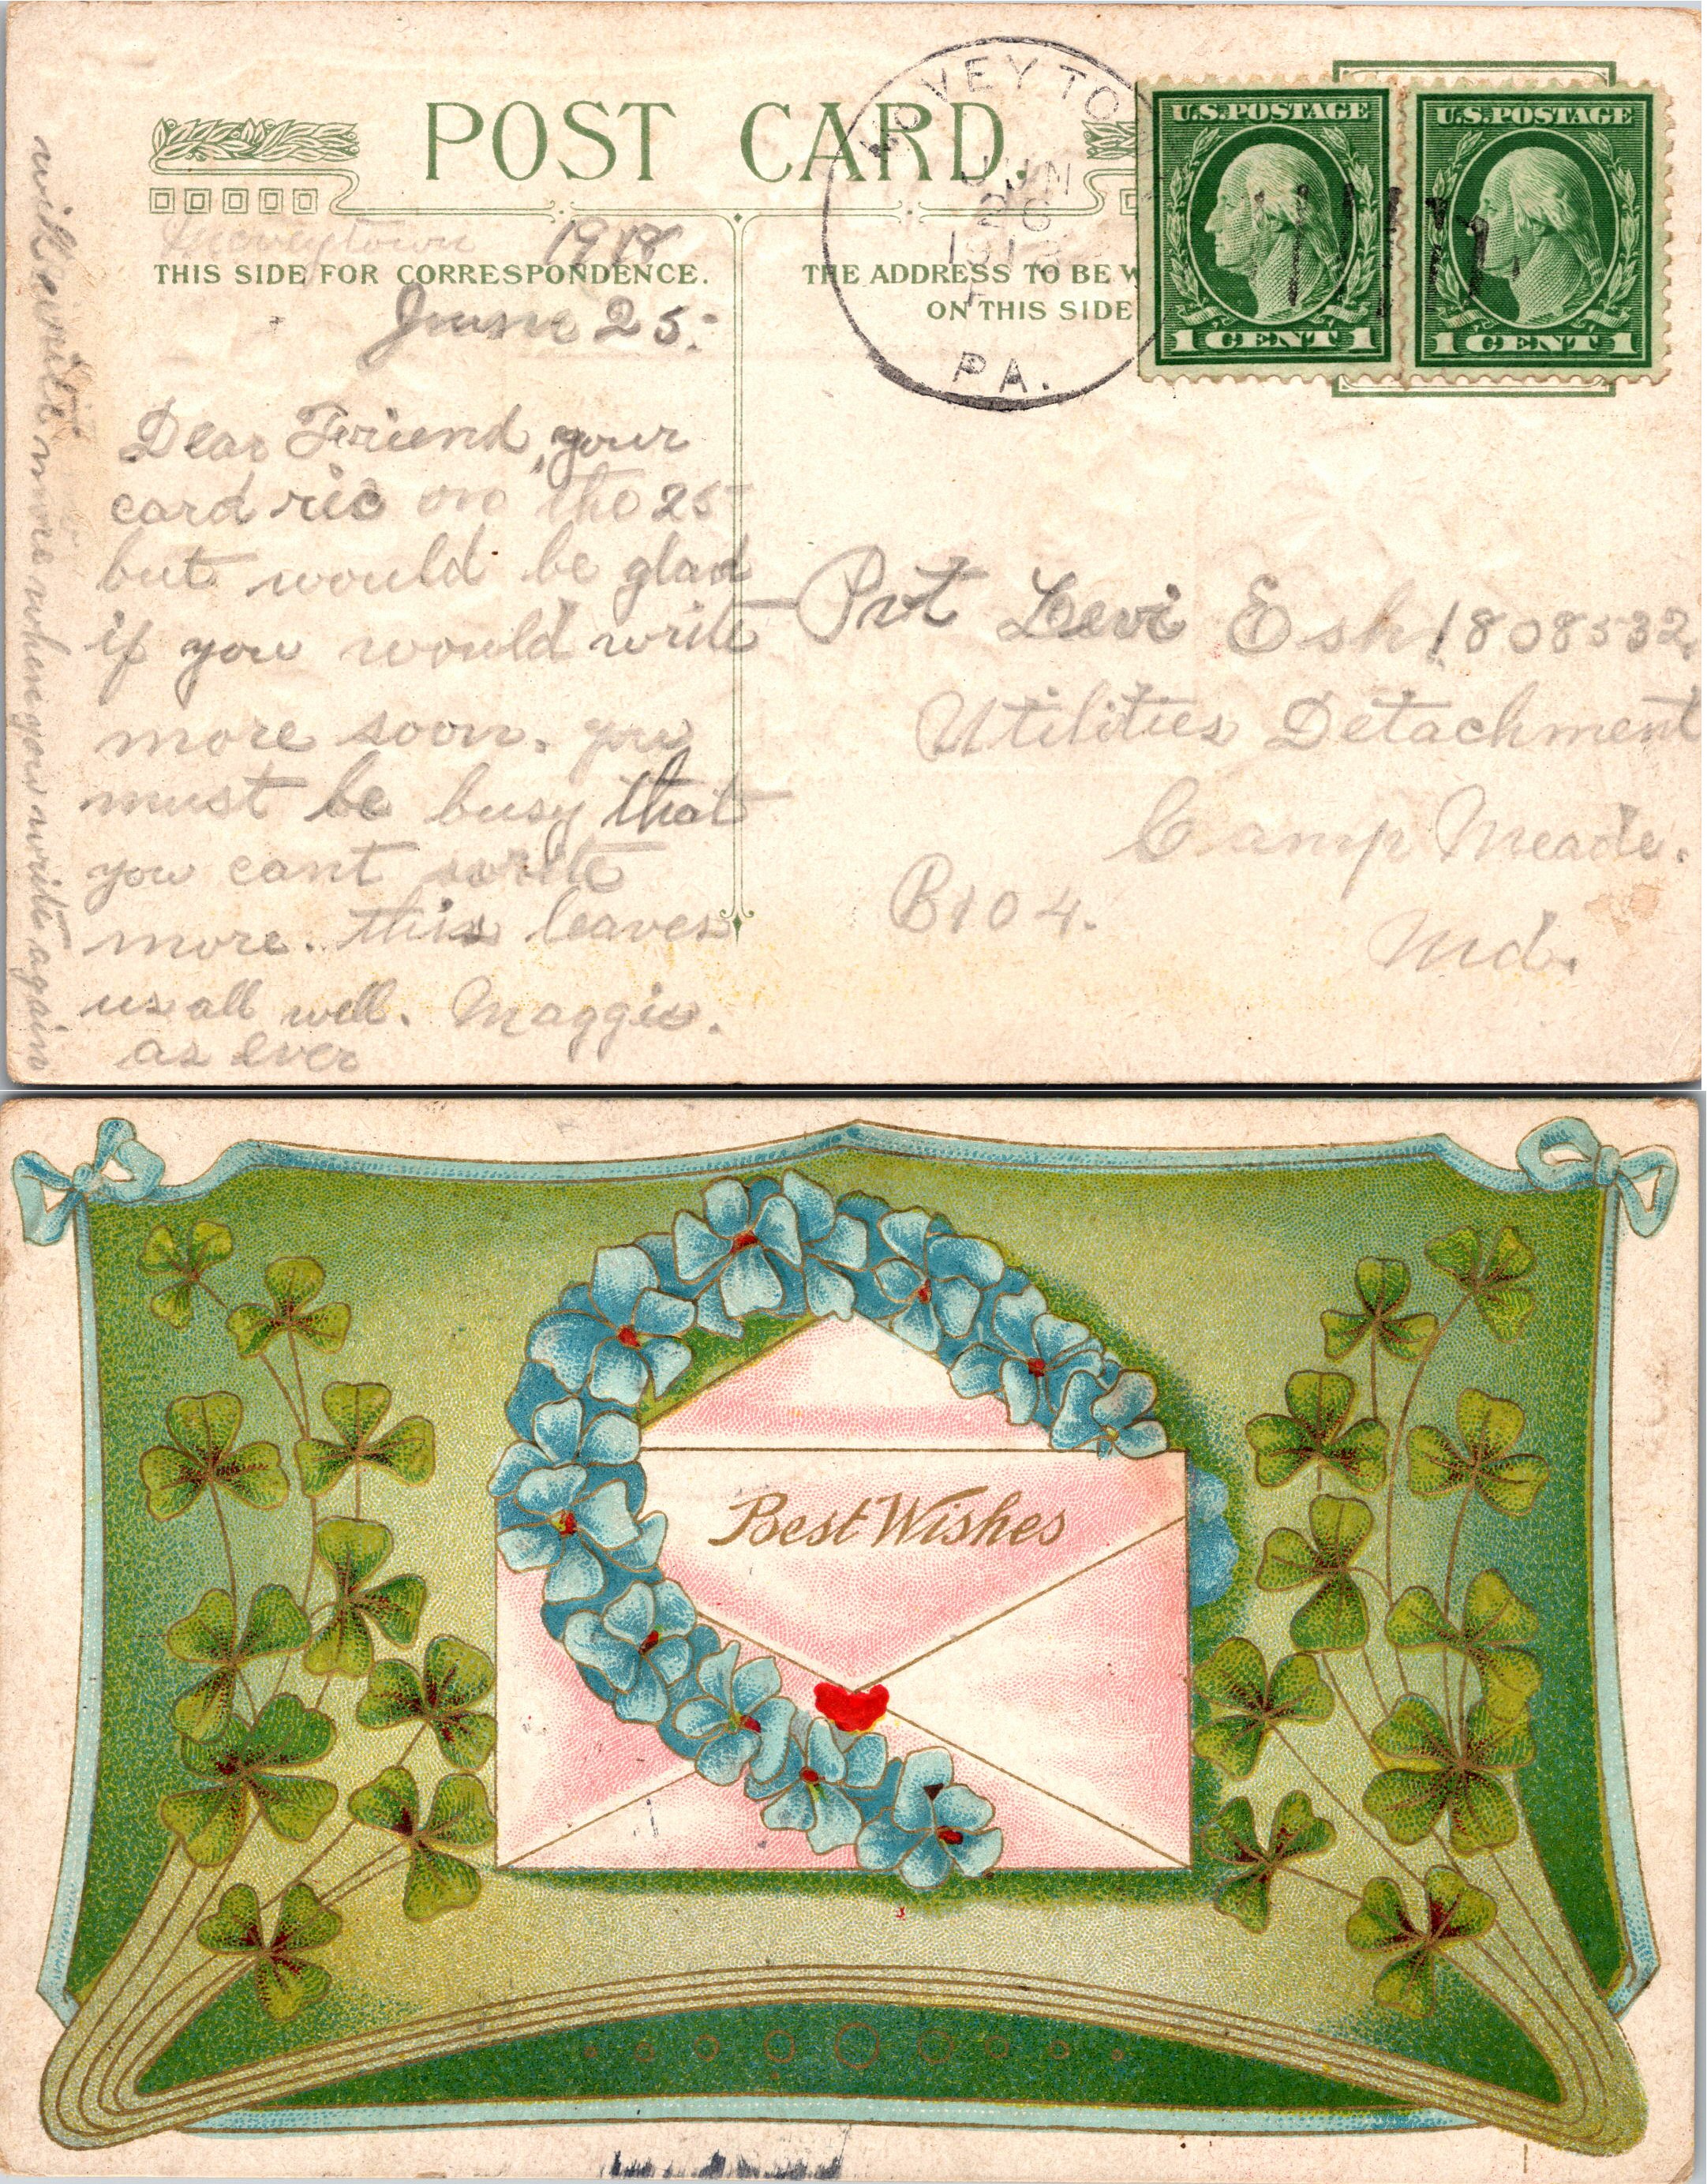 POST CARD.
VEYTO
JUN
26
1918
PA.
U.S. POSTAGE
1 CENT 1
U.S. POSTAGE
1 CENT 1
1918
THIS SIDE FOR CORRESPONDENCE.
THE ADDRESS TO BE W
ON THIS SIDE
June 25.
Dear Friend, your
card ric on the 25
but would be glad
if you would write
more soon. you
must be busy that
you cant write
more. this leaves
us all well. Maggie.
as ever
will write more when you write again
Pvt Levi Esh 1808532.
Utilities Detachment
Camp Meade.
B104.
Md.
Best Wishes